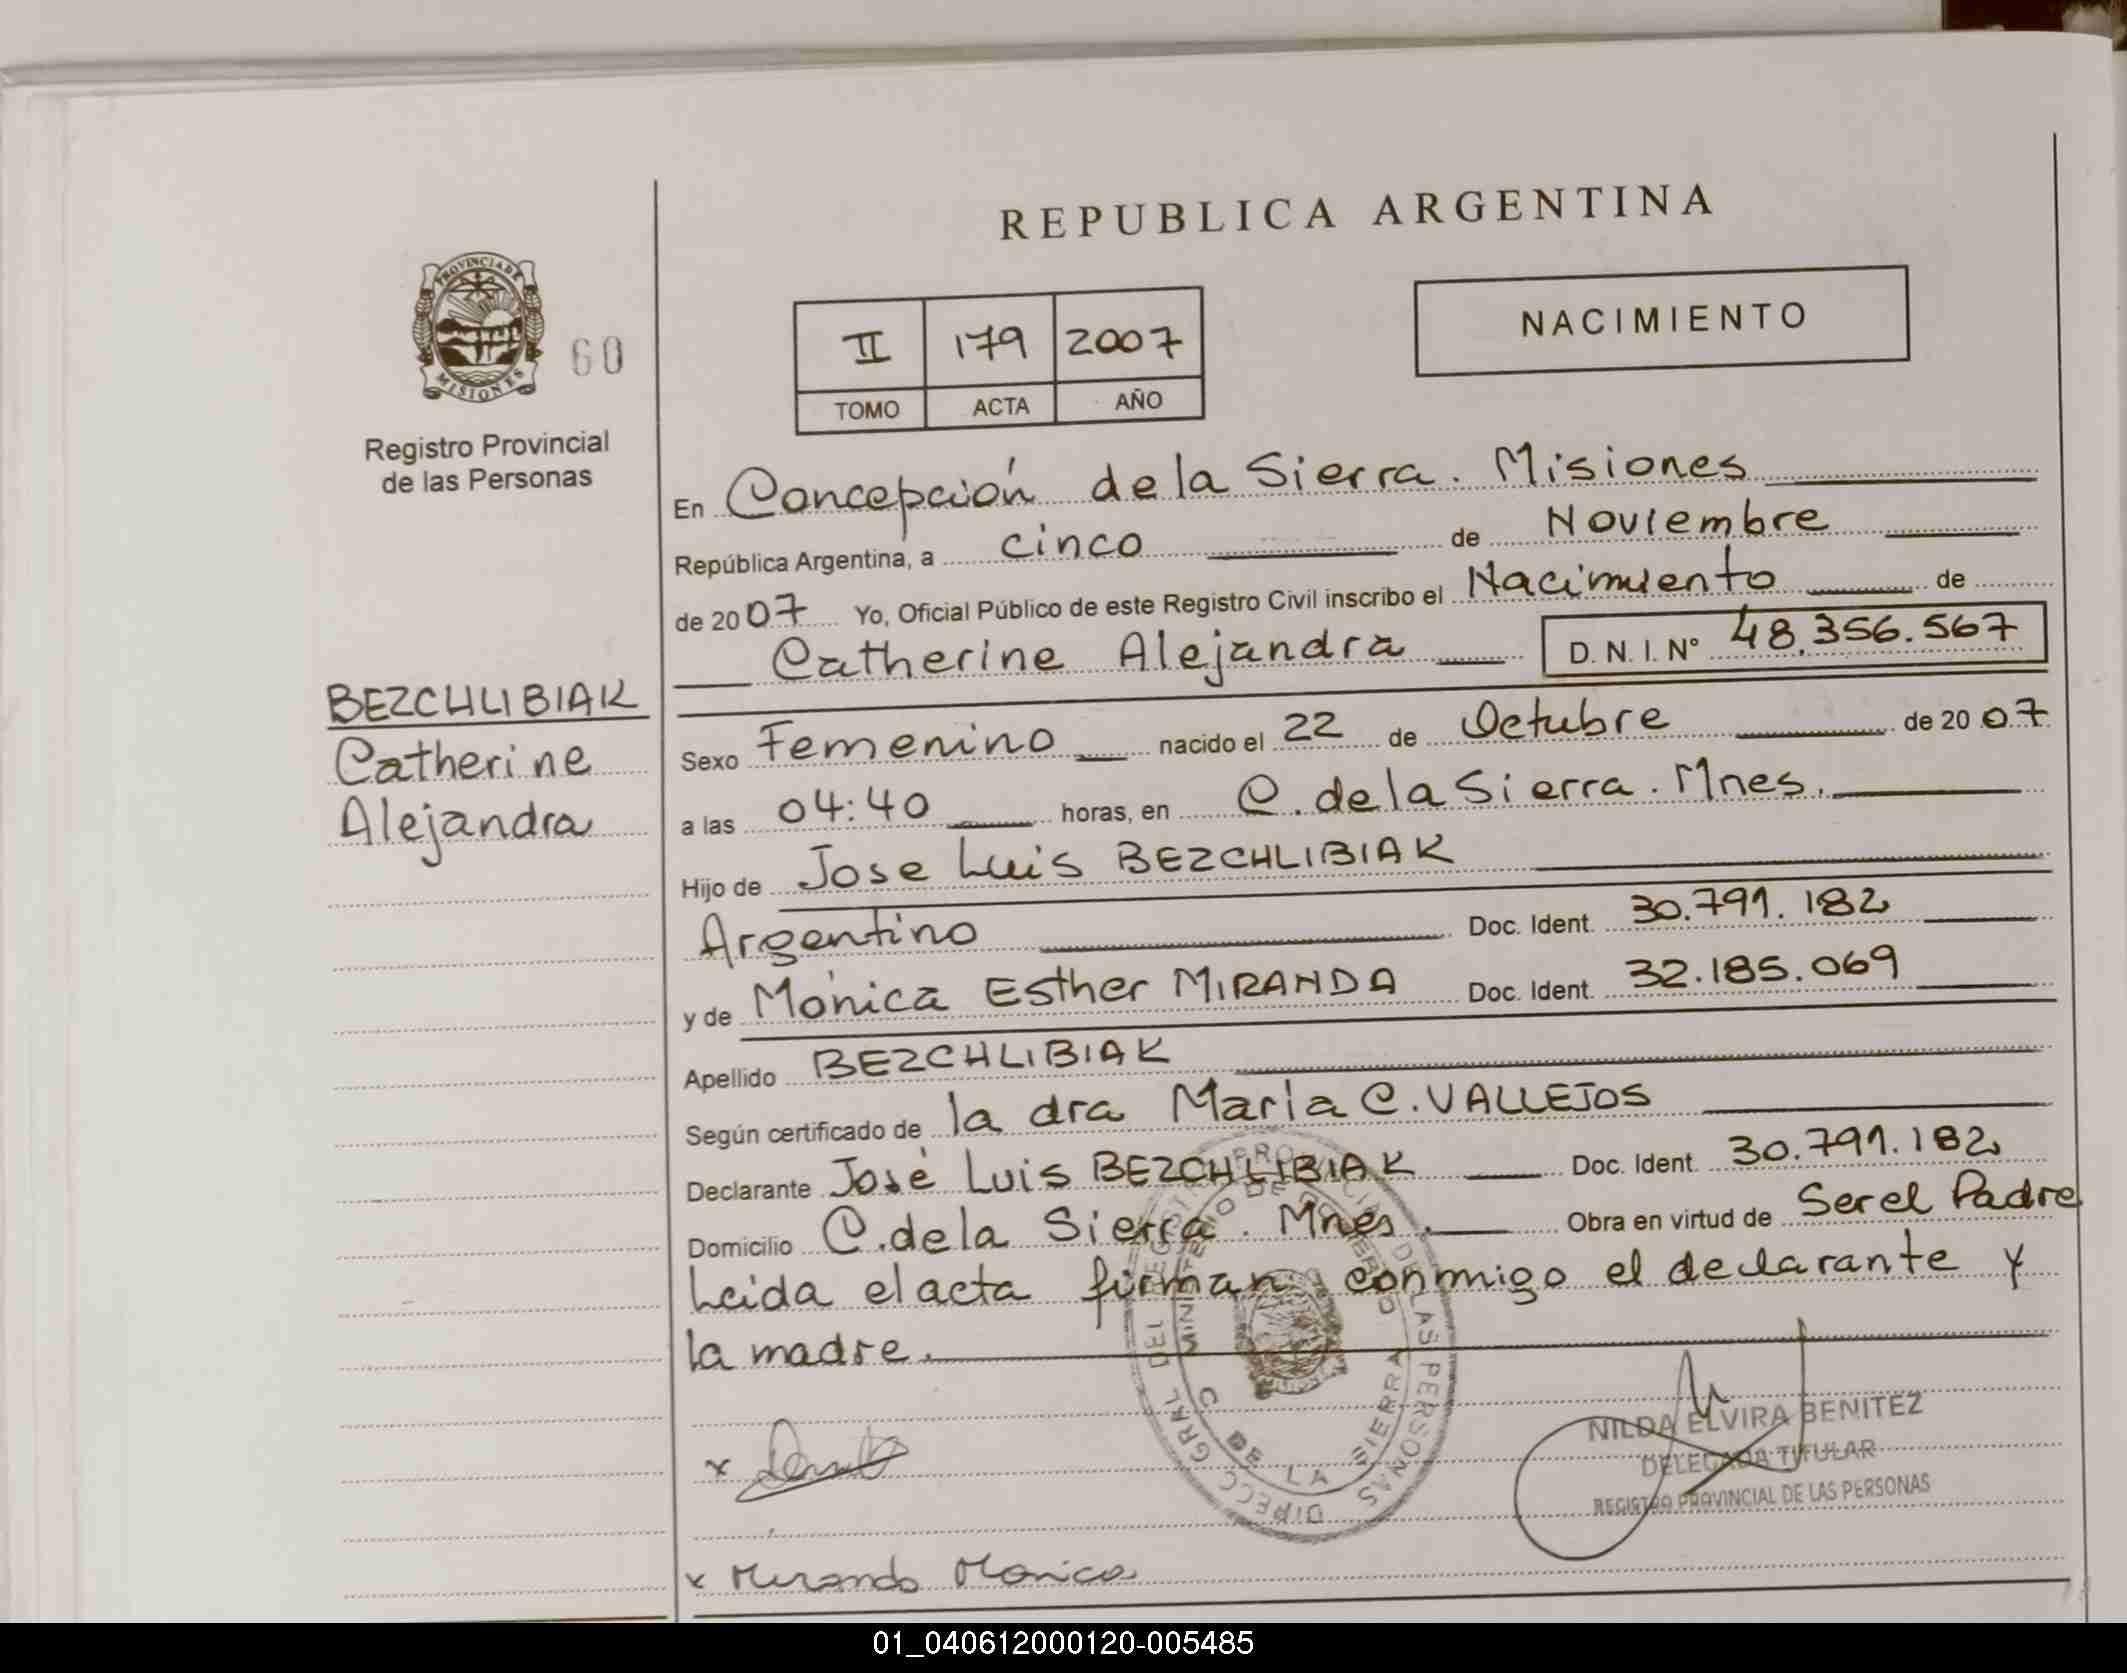 REPUBLICA ARGENTINA
PROVINCIA DE
MISIONES
60
Registro Provincial
de las Personas
II 179 2007
TOMO ACTA AÑO
NACIMIENTO
En Concepción de la Sierra. Misiones
República Argentina, a cinco de Noviembre
de 2007 Yo, Oficial Público de este Registro Civil inscribo el Nacimiento de
Catherine Alejandra D. N. I. Nº 48.356.567
BEZCHLIBIAK
Catherine
Alejandra
Sexo Femenino nacido el 22 de Octubre de 2007
a las 04:40 horas, en C. de la Sierra. Mnes.
Hijo de Jose Luis BEZCHLIBIAK
Argentino Doc. Ident. 30.791.182
y de Mónica Esther MIRANDA Doc. Ident. 32.185.069
Apellido BEZCHLIBIAK
Según certificado de la dra María C. VALLEJOS
Declarante José Luis BEZCHLIBIAK Doc. Ident. 30.791.182
Domicilio C. de la Sierra. Mnes. Obra en virtud de Ser el Padre
Leida el acta firman conmigo el declarante y
la madre.
DIRECC GRAL DEL REGISTRO PROVINCIAL DE LAS PERSONAS
MINISTERIO DE GOBIERNO
C DE LA SIERRA
NILDA ELVIRA BENITEZ
DELEGADA TITULAR
REGISTRO PROVINCIAL DE LAS PERSONAS
x
x Miranda Monica
01_040612000120-005485